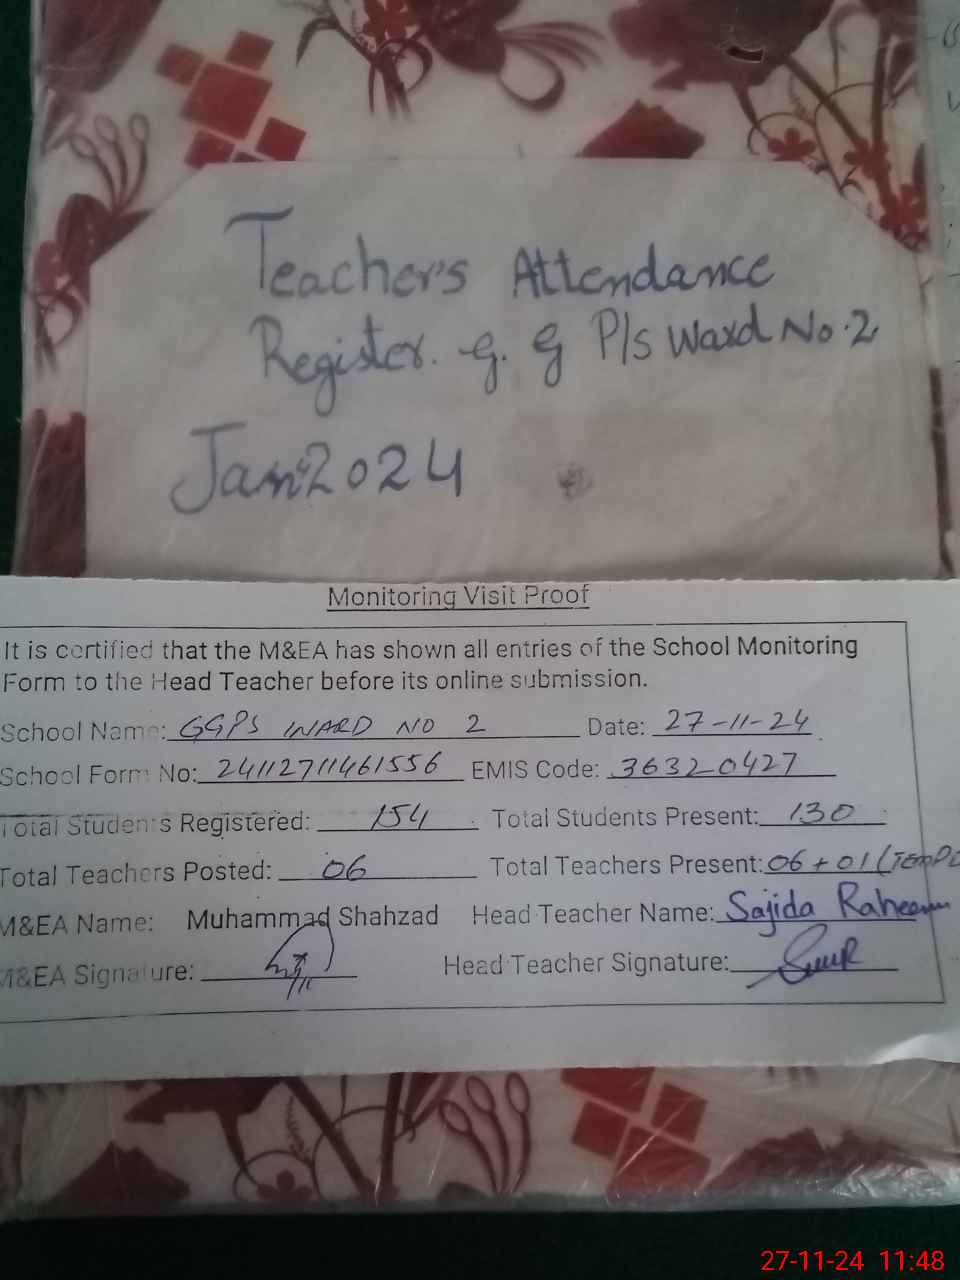 Teacher's Attendance
Register. G. G P/S Ward No.2
Jan 2024
Monitoring Visit Proof
It is certified that the M&EA has shown all entries of the School Monitoring
Form to the Head Teacher before its online submission.
School Name: GGPS WARD NO 2 Date: 27-11-24
School Form No: 24112711461556 EMIS Code: 36320427
Total Students Registered: 154 Total Students Present: 130
Total Teachers Posted: 06 Total Teachers Present: 06 + 01 (
M&EA Name: Muhammad Shahzad Head Teacher Name: Sajida Raheem
M&EA Signature: Head Teacher Signature:
27-11-24 11:48